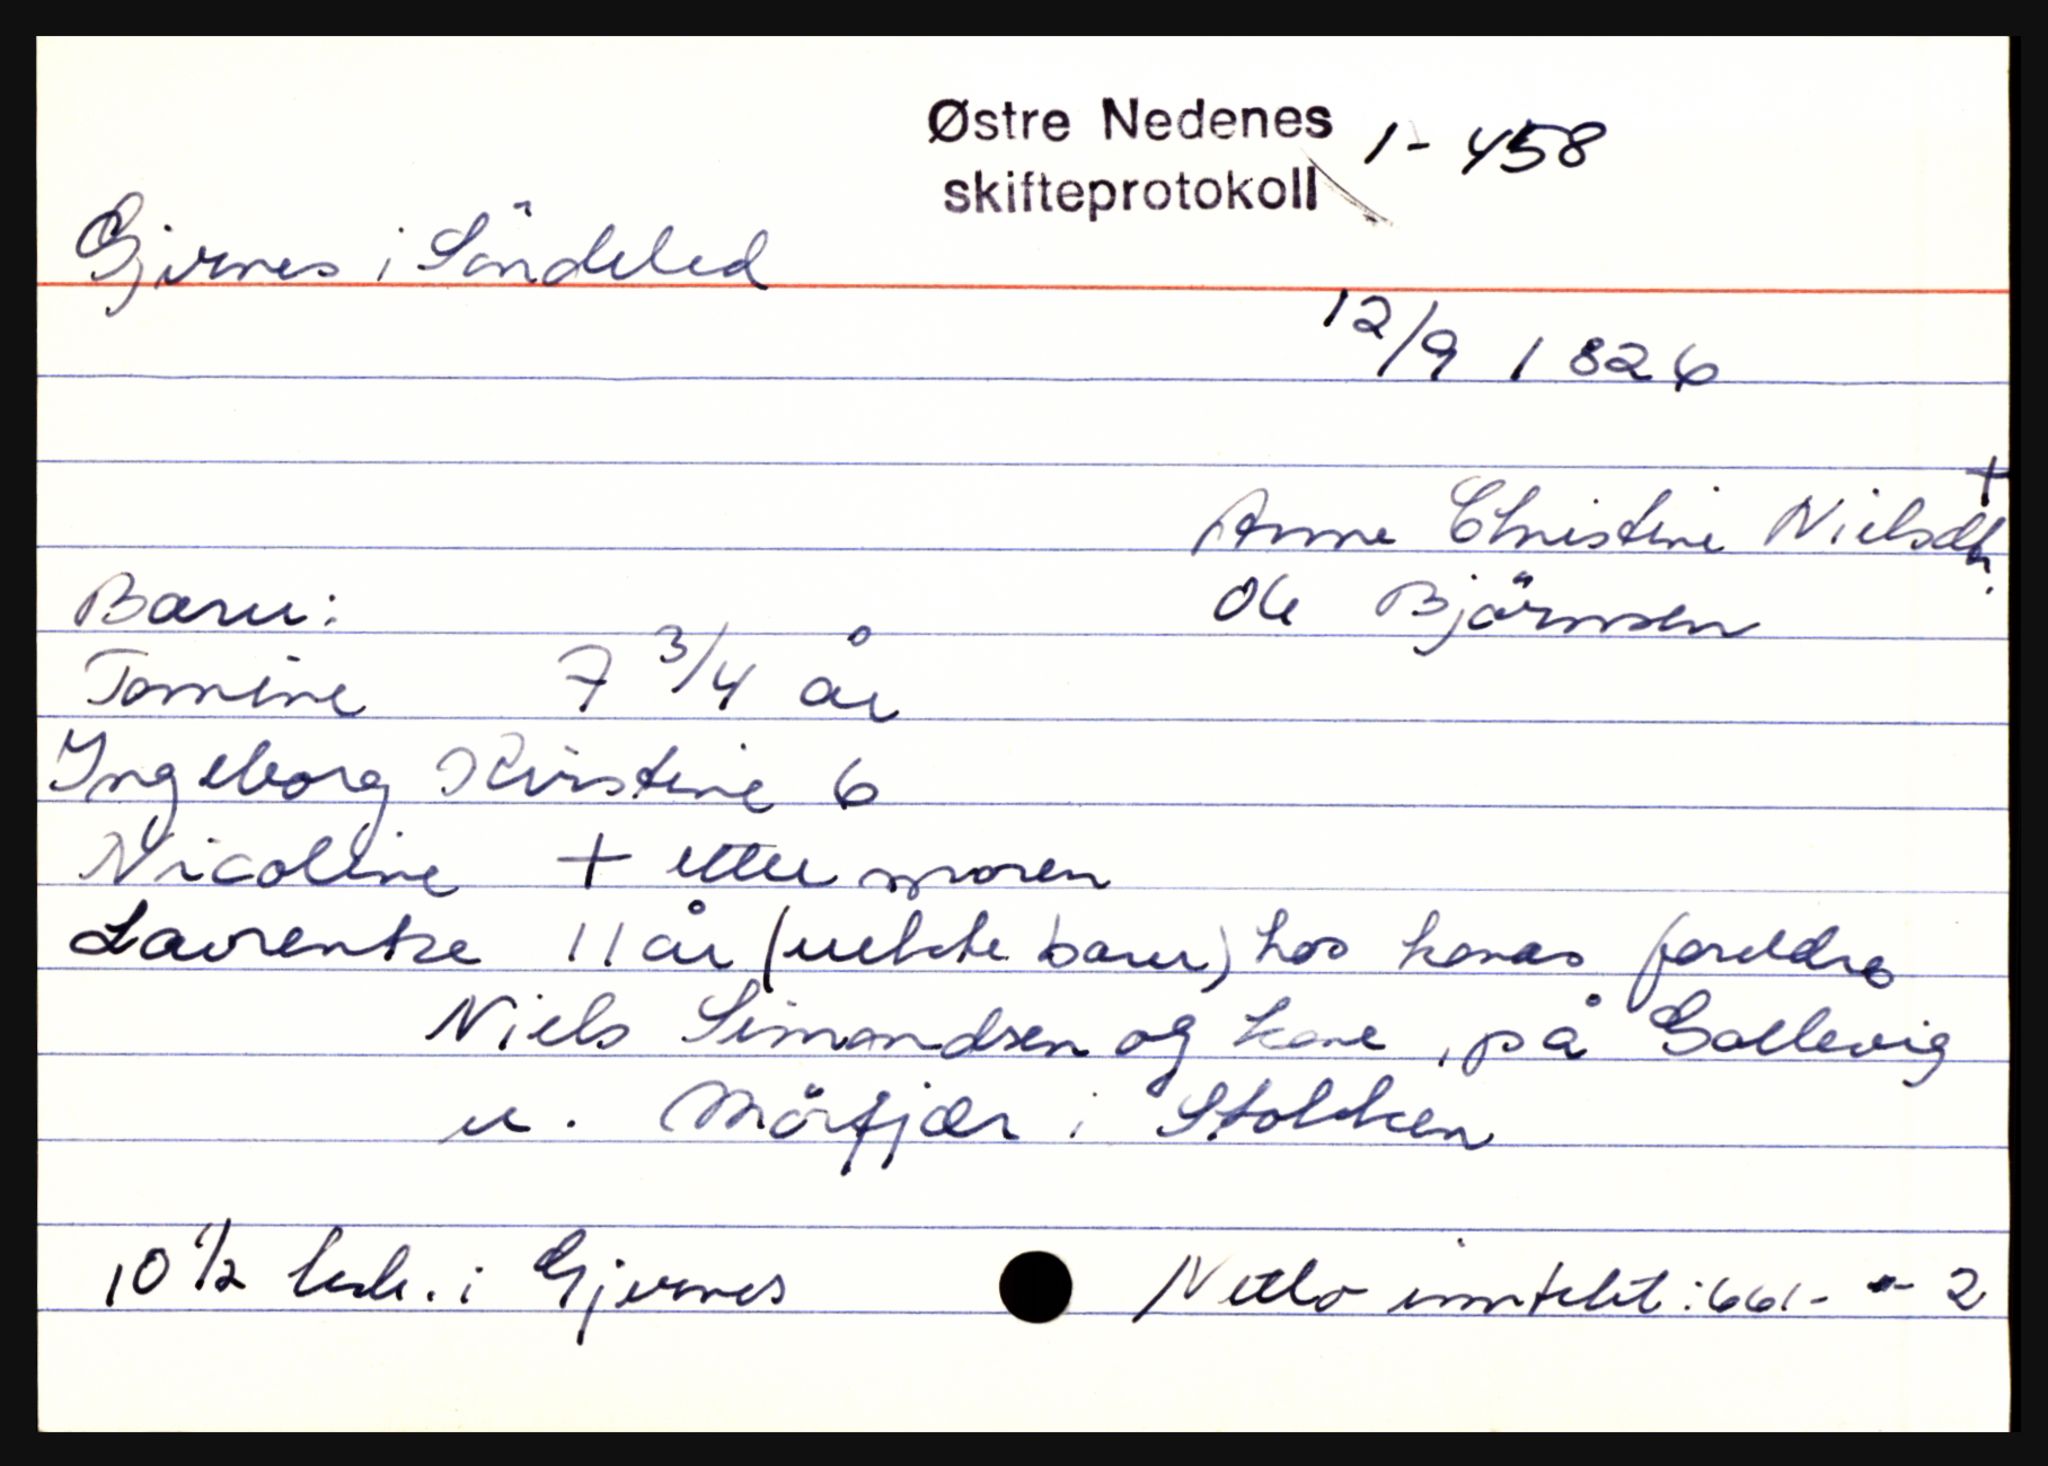 Østre Nedenes 1-458
skifteprotokoll
Gjernes i Söndeled
12/9 1826
+
Anne Christine Nielsdtr.
Ole Björnsen
Barn:
Tomine 7 3/4 år
Ingeborg Kirstine 6
Nicoline + etter moren
Laurentze 11 år (uekte barn) hos konas foreldre
Niels Simondsen og kone, på Gollevig
u. Mörfjær i Stokken
10 1/2 lisb. i Gjernes
Netto inntekt: 661- - 2